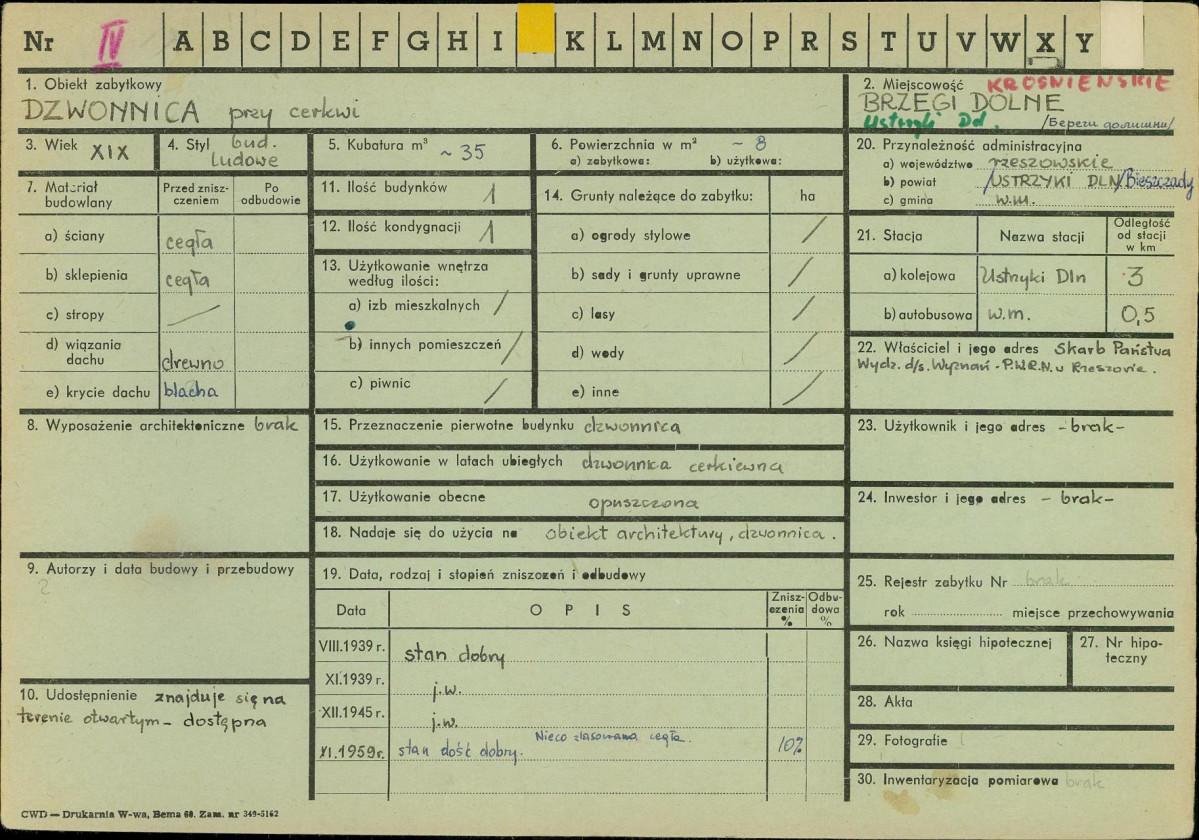 Nr IV A B C D E F G H I K L M N O P R S T U V W X Y
1. Obiekt zabytkowy
DZWONNICA przy cerkwi
2. Miejscowość KROŚNIEŃSKIE
BRZEGI DOLNE
Ustrzyki Dl. /Береги долишни/
3. Wiek XIX
4. Styl bud.
ludowe
5. Kubatura m³ ~ 35
6. Powierzchnia w m² ~ 8
a) zabytkowa: b) użytkowa:
20. Przynależność administracyjna
a) województwo rzeszowskie
b) powiat /USTRZYKI DLN/Bieszczady
c) gmina w.m.
7. Materiał budowlany
Przed zniszczeniem
Po odbudowie
a) ściany cegła
b) sklepienia cegła
c) stropy —
d) wiązania dachu drewno
e) krycie dachu blacha
11. Ilość budynków 1
12. Ilość kondygnacji 1
13. Użytkowanie wnętrza
według ilości:
a) izb mieszkalnych /
b) innych pomieszczeń /
c) piwnic /
14. Grunty należące do zabytku: ha
a) ogrody stylowe /
b) sady i grunty uprawne /
c) lasy /
d) wody /
e) inne /
21. Stacja Nazwa stacji Odległość od stacji w km
a) kolejowa Ustrzyki Dln 3
b) autobusowa w.m. 0,5
22. Właściciel i jego adres Skarb Państwa
Wydz. d/s. Wyznań - P.W.R.N. w Rzeszowie.
8. Wyposażenie architektoniczne brak
15. Przeznaczenie pierwotne budynku dzwonnica
16. Użytkowanie w latach ubiegłych dzwonnica cerkiewna
17. Użytkowanie obecne opuszczona
18. Nadaje się do użycia na obiekt architektury, dzwonnica.
23. Użytkownik i jego adres - brak -
24. Inwestor i jego adres - brak -
9. Autorzy i data budowy i przebudowy
?
19. Data, rodzaj i stopień zniszczeń i odbudowy
Data O P I S Zniszczenia % Odbudowa %
VIII.1939 r. stan dobry
XI.1939 r. j.w.
XII.1945 r. j.w.
XI.1959 r. stan dość dobry. Nieco zlasowana cegła. 10%
25. Rejestr zabytku Nr brak
rok miejsce przechowywania
26. Nazwa księgi hipotecznej
27. Nr hipoteczny
10. Udostępnienie znajduje się na
terenie otwartym - dostępna
28. Akta
29. Fotografie
30. Inwentaryzacja pomiarowa brak
CWD — Drukarnia W-wa, Bema 60. Zam. nr 349-5162